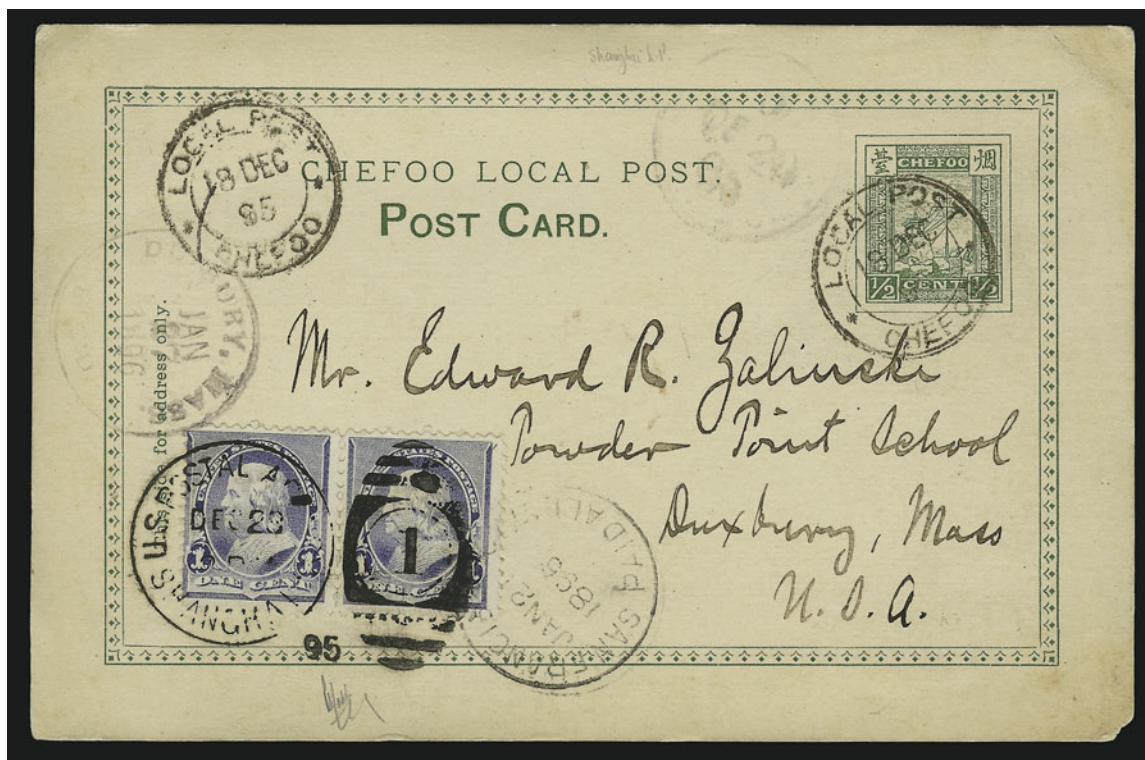 Shanghai L.P.
LOCAL POST
18 DEC
95
CHEFOO
CHEFOO LOCAL POST.
POST CARD.
臺 CHEFOO 烟
1/2 CENT 1/2
LOCAL POST
18 DEC
CHEFOO
JAN
MASS
This side for address only.
Mr. Edward R. Zalinski
Powder Point School
Duxbury, Mass
U. S. A.
U.S. POSTAL AG
DEC 23
SHANGHAI
95
1
1 ONE CENT 1
SAN FRANCI
JAN 2
PAID ALL